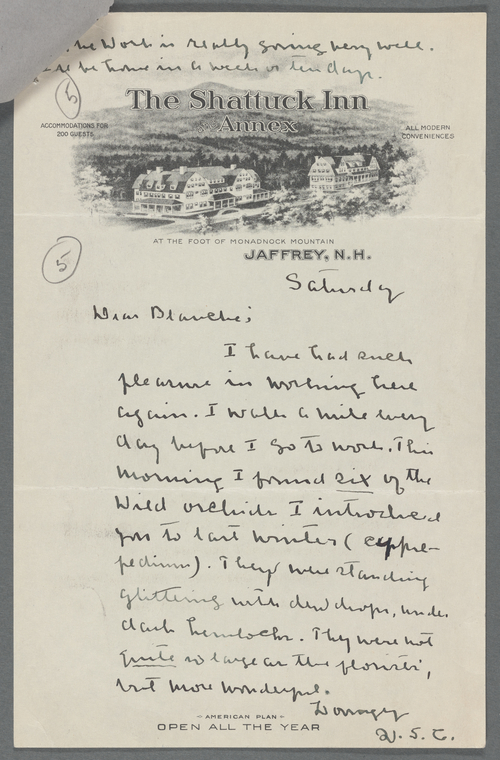 the Work is really going very well.
be home in a week or ten days.
5
The Shattuck Inn
and Annex
ACCOMMODATIONS FOR
200 GUESTS.
ALL MODERN
CONVENIENCES
AT THE FOOT OF MONADNOCK MOUNTAIN
JAFFREY, N.H.
5
Saturday
Dear Blanche;
I have had such
pleasure in working here
again. I walk a mile every
day before I go to work. This
morning I found six of the
Wild orchids I introduced
you to last winter (cyppre-
pedium). They were standing
glittering with dewdrops, under
dark hemlocks. They were not
quite so large as the florists',
but more wonderful.
W. S. C.
– AMERICAN PLAN –
OPEN ALL THE YEAR